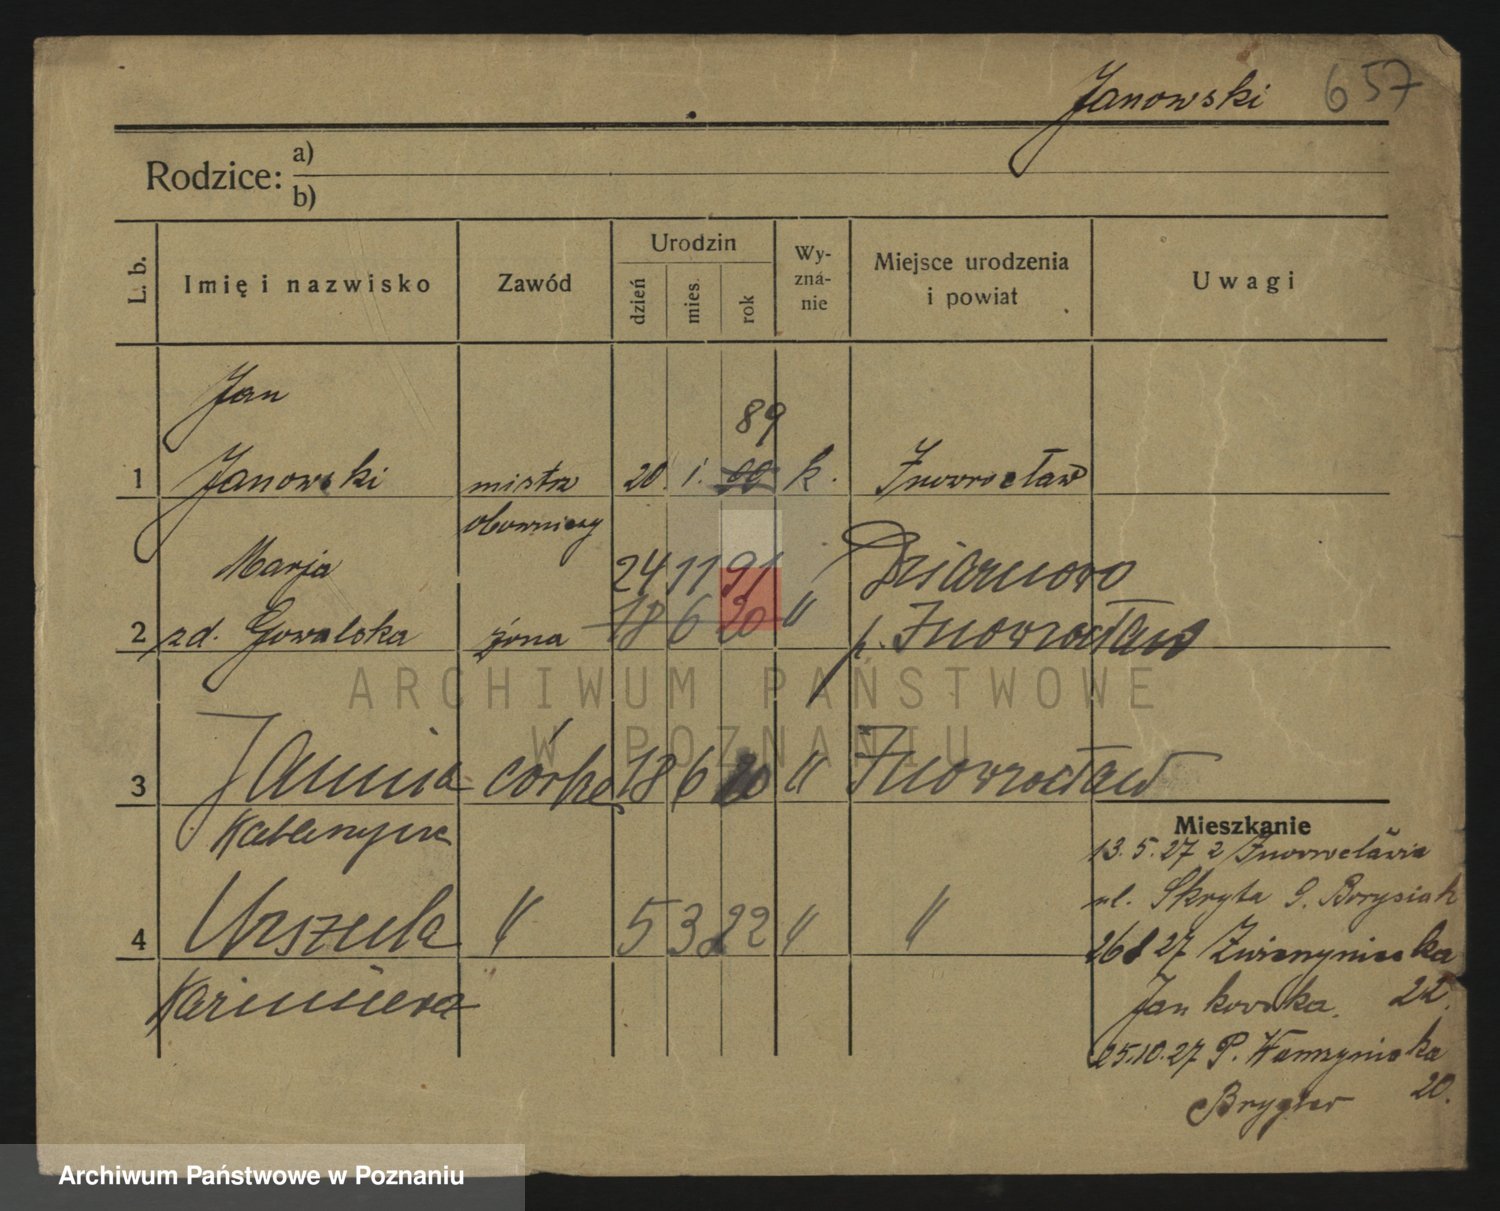 Janowski 657
Rodzice: a)
b)
L. b. Imię i nazwisko Zawód Urodzin dzień mies. rok Wyznánie Miejsce urodzenia i powiat Uwagi
Jan
89
1 Janowski mistrz 20. 1. 00 k. Inowrocław
obowniczy
Marja 24 11 91 Dziarnowo
2 zd. Gowalska żona 18 6 20 " p. Inowrocław
ARCHIWUM PAŃSTWOWE
W POZNANIU
3 Janina córka 18 6 20 " Inowrocław
Katarzyna
Mieszkanie
13. 5. 27 z Inowrocławia
ul. Skryta 9. Borysiak
4 Urszula " 5 3 22 " "
27 Zwierzyniecka
Kazimiera
Jankowska. 22.
25.10.27 P. Wawrzyniaka
20.
Archiwum Państwowe w Poznaniu